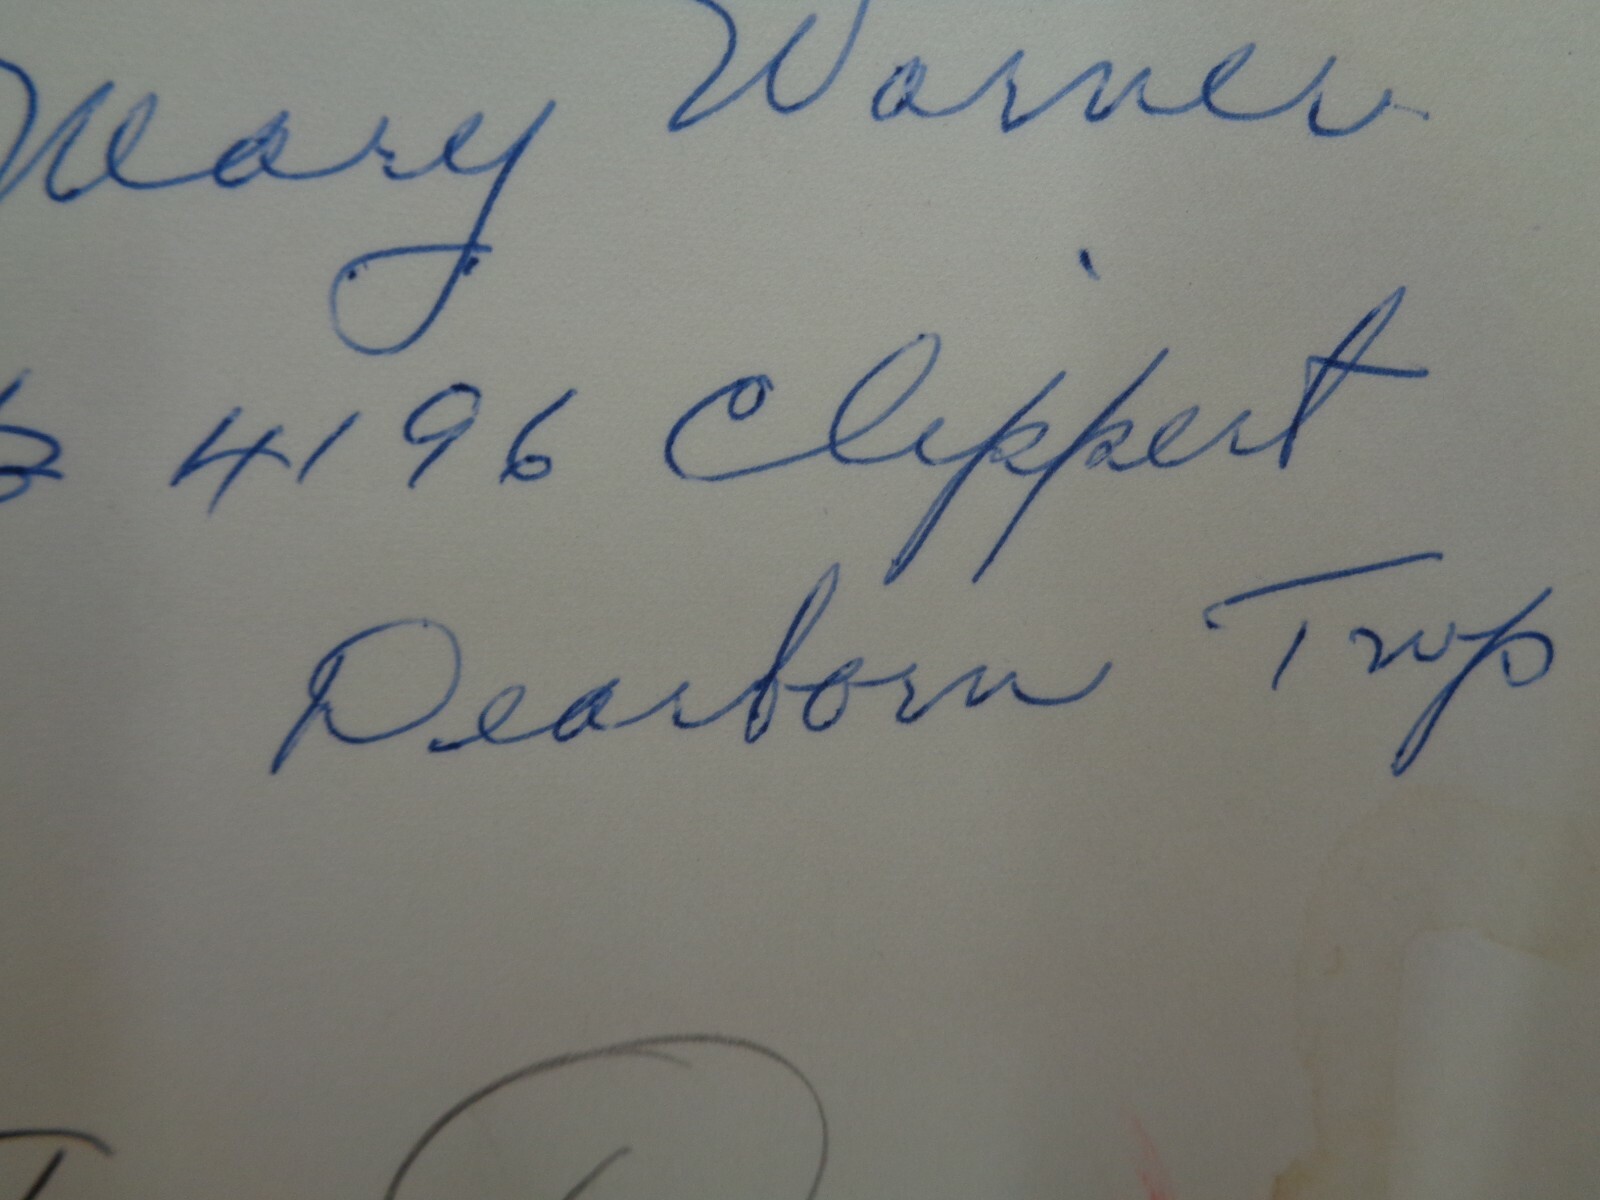 Mary Warner
4196 Clippert
Dearborn Twp